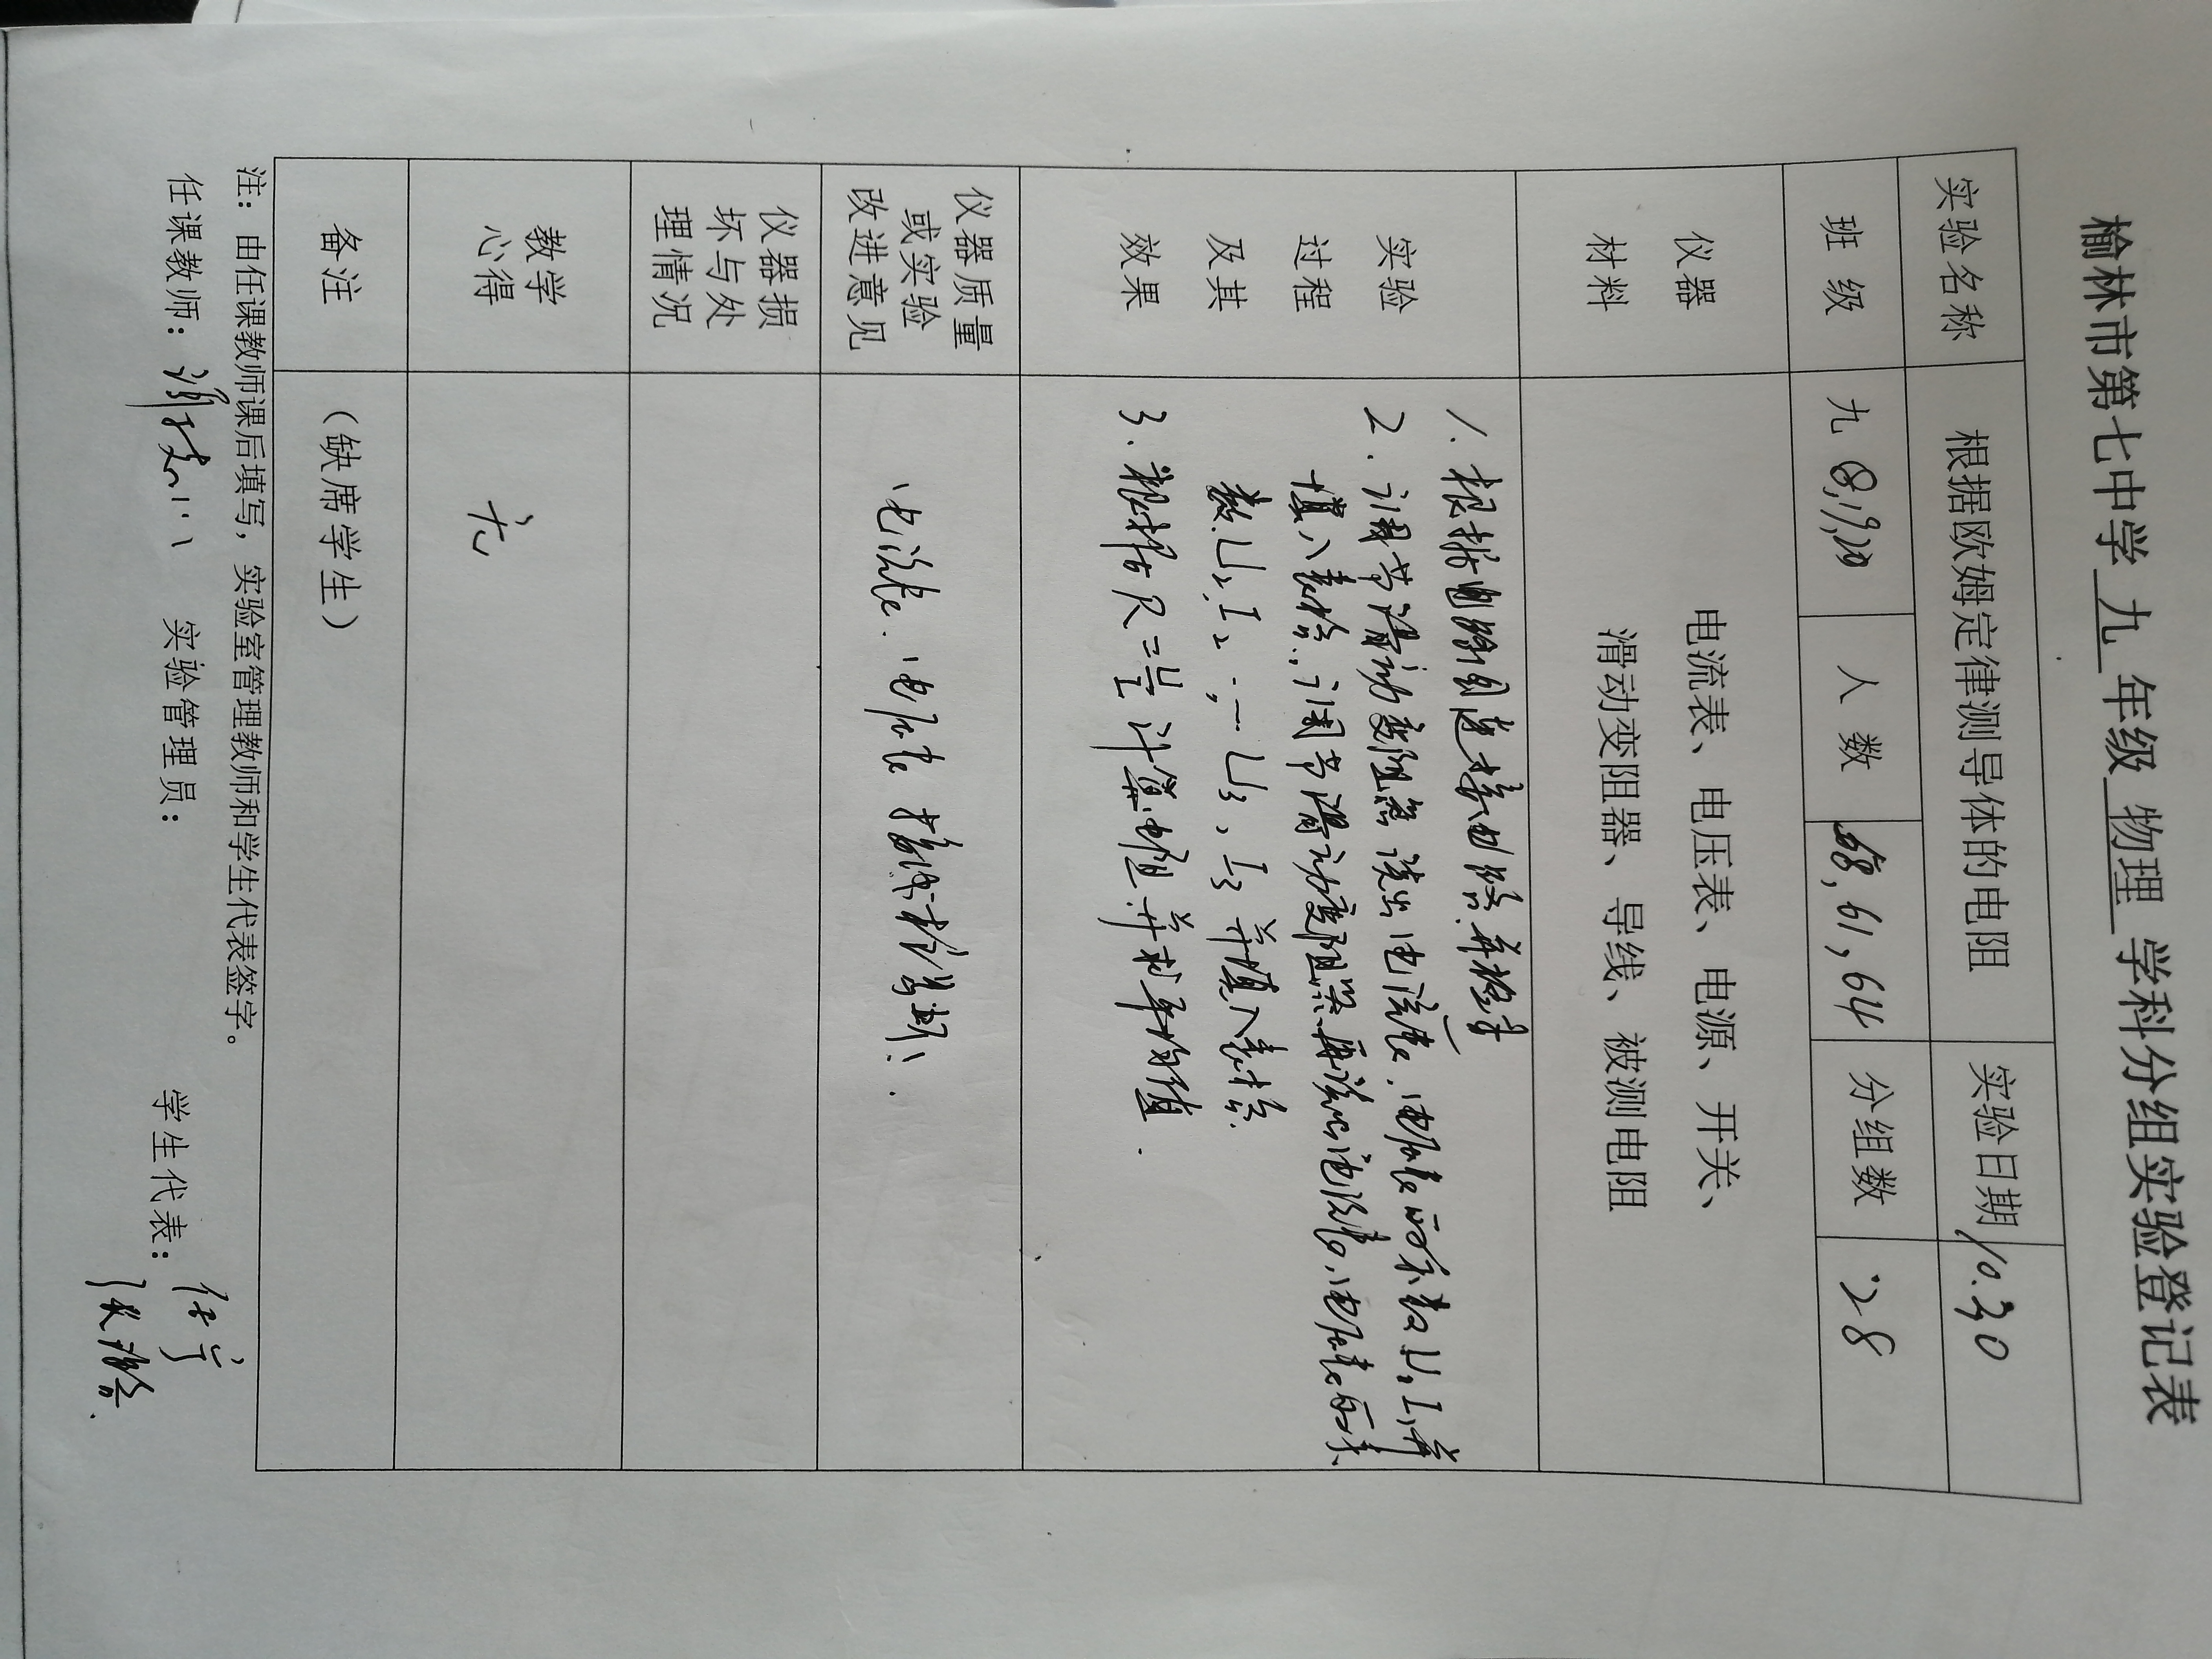 榆林市第七中学 九 年级 物理 学科分组实验登记表
实验名称 根据欧姆定律测导体的电阻 实验日期 10.30
班 级 九 8,19,20 人 数 68,61,64 分组数 28
仪器 电流表、电压表、电源、开关、
材料 滑动变阻器、导线、被测电阻
实验
过程
及其
效果
1.根据电路图连接电路并检查
2.调节滑动变阻器 读出电流表、电压表的示数U1 I1并
填入表格,调节滑动变阻器再读出电流表、电压表的示
数U2 I2,一U3,I3 并填入表格
3.根据R=U/I 计算电阻.并求平均值.
仪器质量
或实验
改进意见
电流表.电压表 接线柱
仪器损
坏与处
理情况
教学
心得
无
备注 (缺席学生)
注:由任课教师课后填写,实验室管理教师和学生代表签字。
任课教师: 实验管理员: 学生代表: